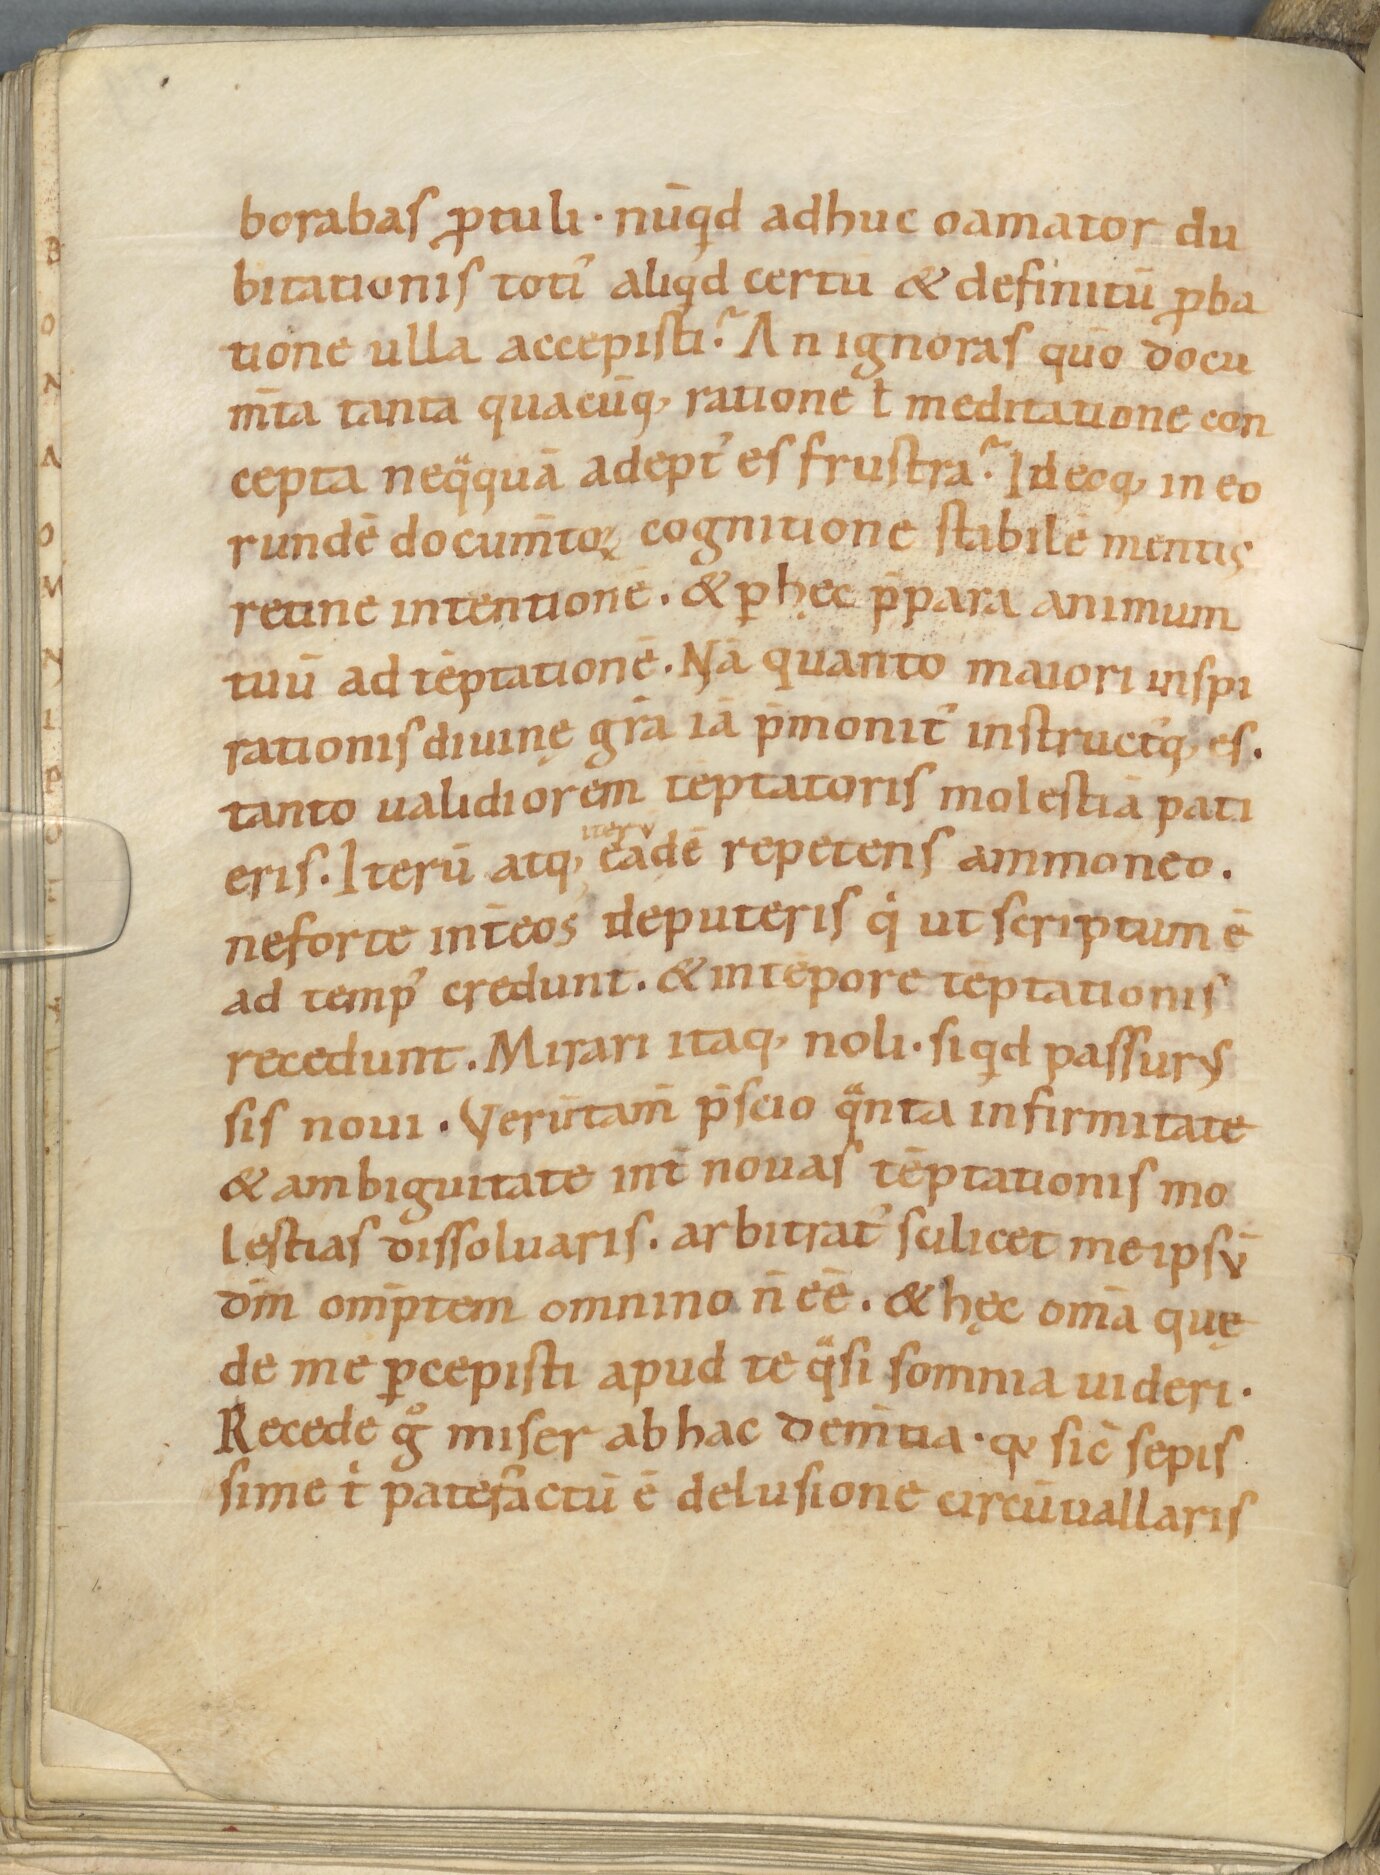 borabas ꝓtuli · nūqd adhuc oamator du
bitationis toti᾽ aliqd certū & definitū ꝓba
tione ulla accepisti? An ignoras quō docu
m̄ta tanta quacūq; ratione ł meditatione con
cepta neq̈quā adept᾽ es frustra? Ideoq; in eo
rundē docum̄toꝝ cognitione stabilē mentis
retine intentionē. & ꝑ hęc p̄para animum
tuū ad tēptationē. Nā quanto maiori inspi
rationis diuinę gr̄a iā p̄monit᾽ instruct᾽q; es.
tanto ualidiorem tēptatoris molestiā pati
eris. Iterū atq; iterv eadē repetens ammoneo.
neforte int̄eos deputeris q̇ ut scriptum ē
ad temp᾽ credunt. & intēpore tēptationis
recedunt. Mirari itaq; noli · siqd passurus
sis noui. Verūtam̄ p̄scio q̈nta infirmitate
& ambiguitate int̄ nouas tēptationis mo
lestias dissoluaris. arbitrat᾽ scilicet me ipsv̄
dm̄ om̄ptem omnino n̄ eē. & hęc om̄a quę
de me ꝑcepisti apud te q̈si somnia uideri.
Recede gͦ miser ab hac dem̄tia · qv sic̄ sepis
sime t̍ patefāctū ē delusione circūuallaris